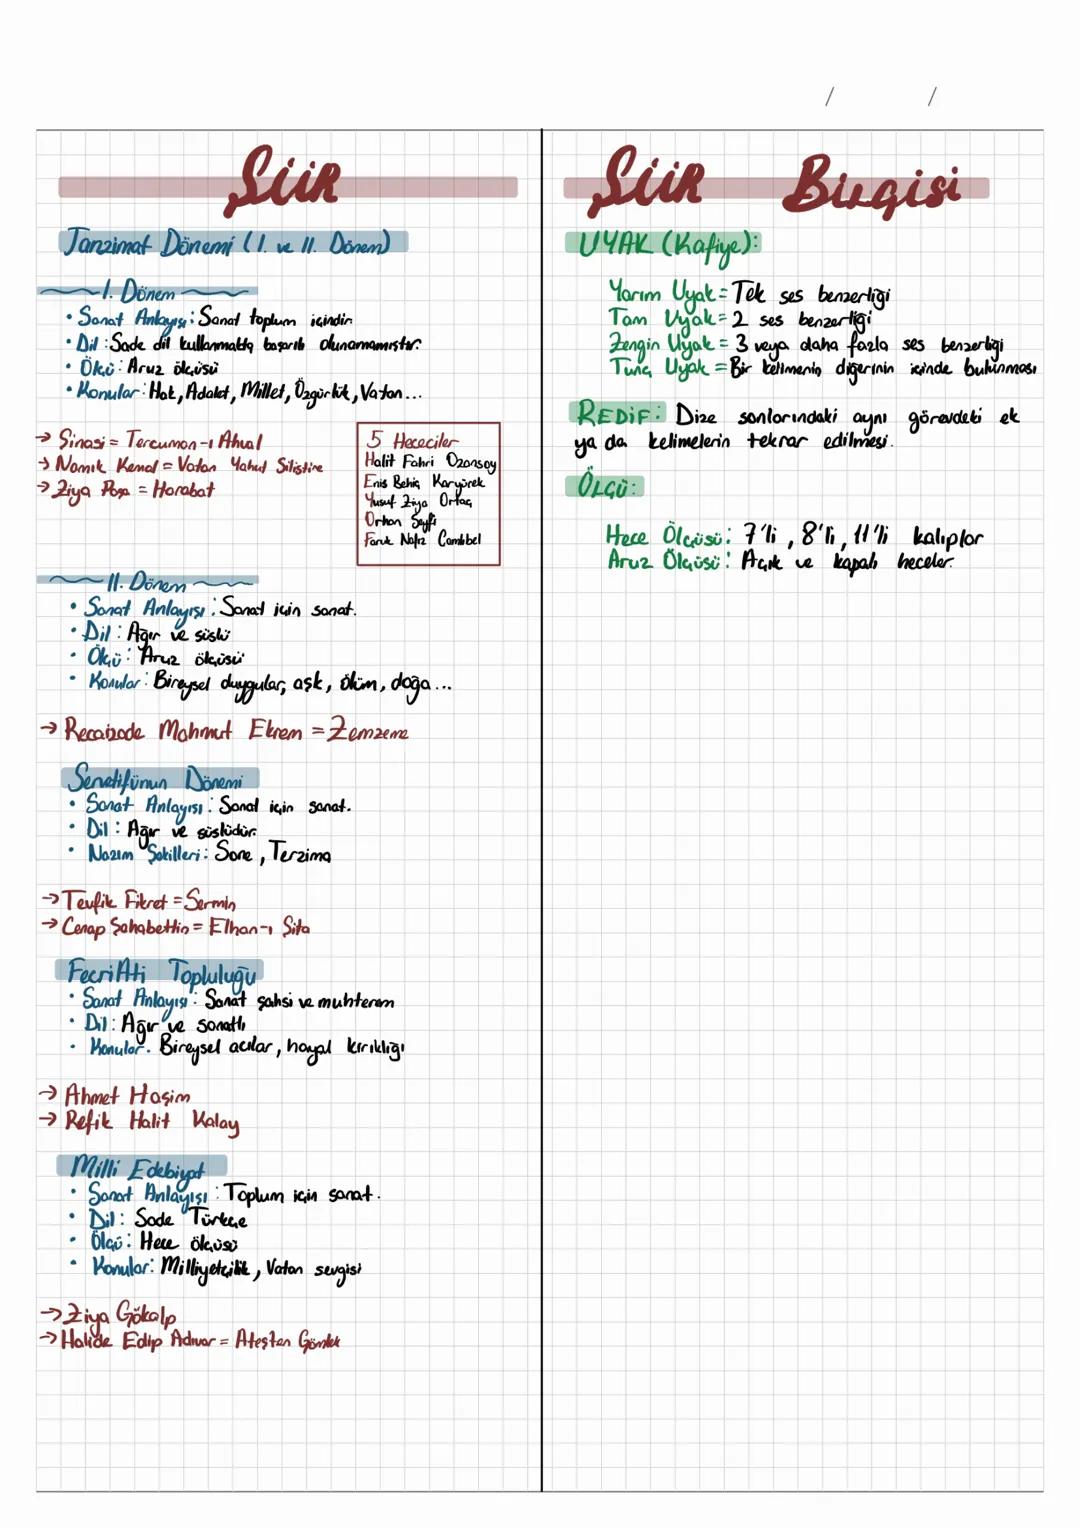 ŞİİR
Tanzimat Dönemi (I. ve II. Dönem)
I. Dönem
• Sanat Anlayışı: Sanat toplum içindir.
• Dil: Sade dil kullanmakta başarılı olunamamıştır.
• Ölçü: Aruz ölçüsü
• Konular: Hak, Adalet, Millet, Özgürlük, Vatan...
→ Şinasi = Tercuman-ı Ahval
→ Namık Kemal = Vatan Yahut Silistire
→ Ziya Paşa = Harabat
5 Hececiler
Halit Fahri Ozansoy
Enis Behiç Koryürek
Yusuf Ziya Ortaç
Orhan Seyfi
Faruk Nafiz Çamlıbel
II. Dönem
• Sanat Anlayışı: Sanat için sanat.
• Dil: Ağır ve süslü
• Ölçü: Aruz ölçüsü
• Konular: Bireysel duygular, aşk, ölüm, doğa...
→ Recaizade Mahmut Ekrem = Zemzeme
Servetifünun Dönemi
• Sanat Anlayışı: Sanat için sanat.
• Dil: Ağır ve süslüdür.
• Nazım Şekilleri: Sone, Terzima
→ Tevfik Fikret = Şermin
→ Cenap Şahabettin = Elhan-ı Şita
FecriAti Topluluğu
• Sanat Anlayışı: Sanat şahsi ve muhterem
• Dil: Ağır ve sanatlı
• Konular: Bireysel acılar, hayal kırıklığı
→ Ahmet Haşim
→ Refik Halit Kalay
Milli Edebiyat
• Sanat Anlayışı: Toplum için sanat.
• Dil: Sade Türkçe
• Ölçü: Hece ölçüsü
• Konular: Milliyetçilik, Vatan sevgisi
→ Ziya Gökalp
→ Halide Edip Adıvar = Ateşten Gömlek
/ /
ŞİİR BİLGİSİ
UYAK (Kafiye):
Yarım Uyak = Tek ses benzerliği
Tam Uyak = 2 ses benzerliği
Zengin Uyak = 3 veya daha fazla ses benzerliği
Tunç Uyak = Bir kelimenin diğerinin içinde bulunması
REDİF: Dize sonlarındaki aynı görevdeki ek
ya da kelimelerin tekrar edilmesi.
ÖLÇÜ:
Hece Ölçüsü: 7'li, 8'li, 11'li kalıplar
Aruz Ölçüsü: Açık ve kapalı heceler.